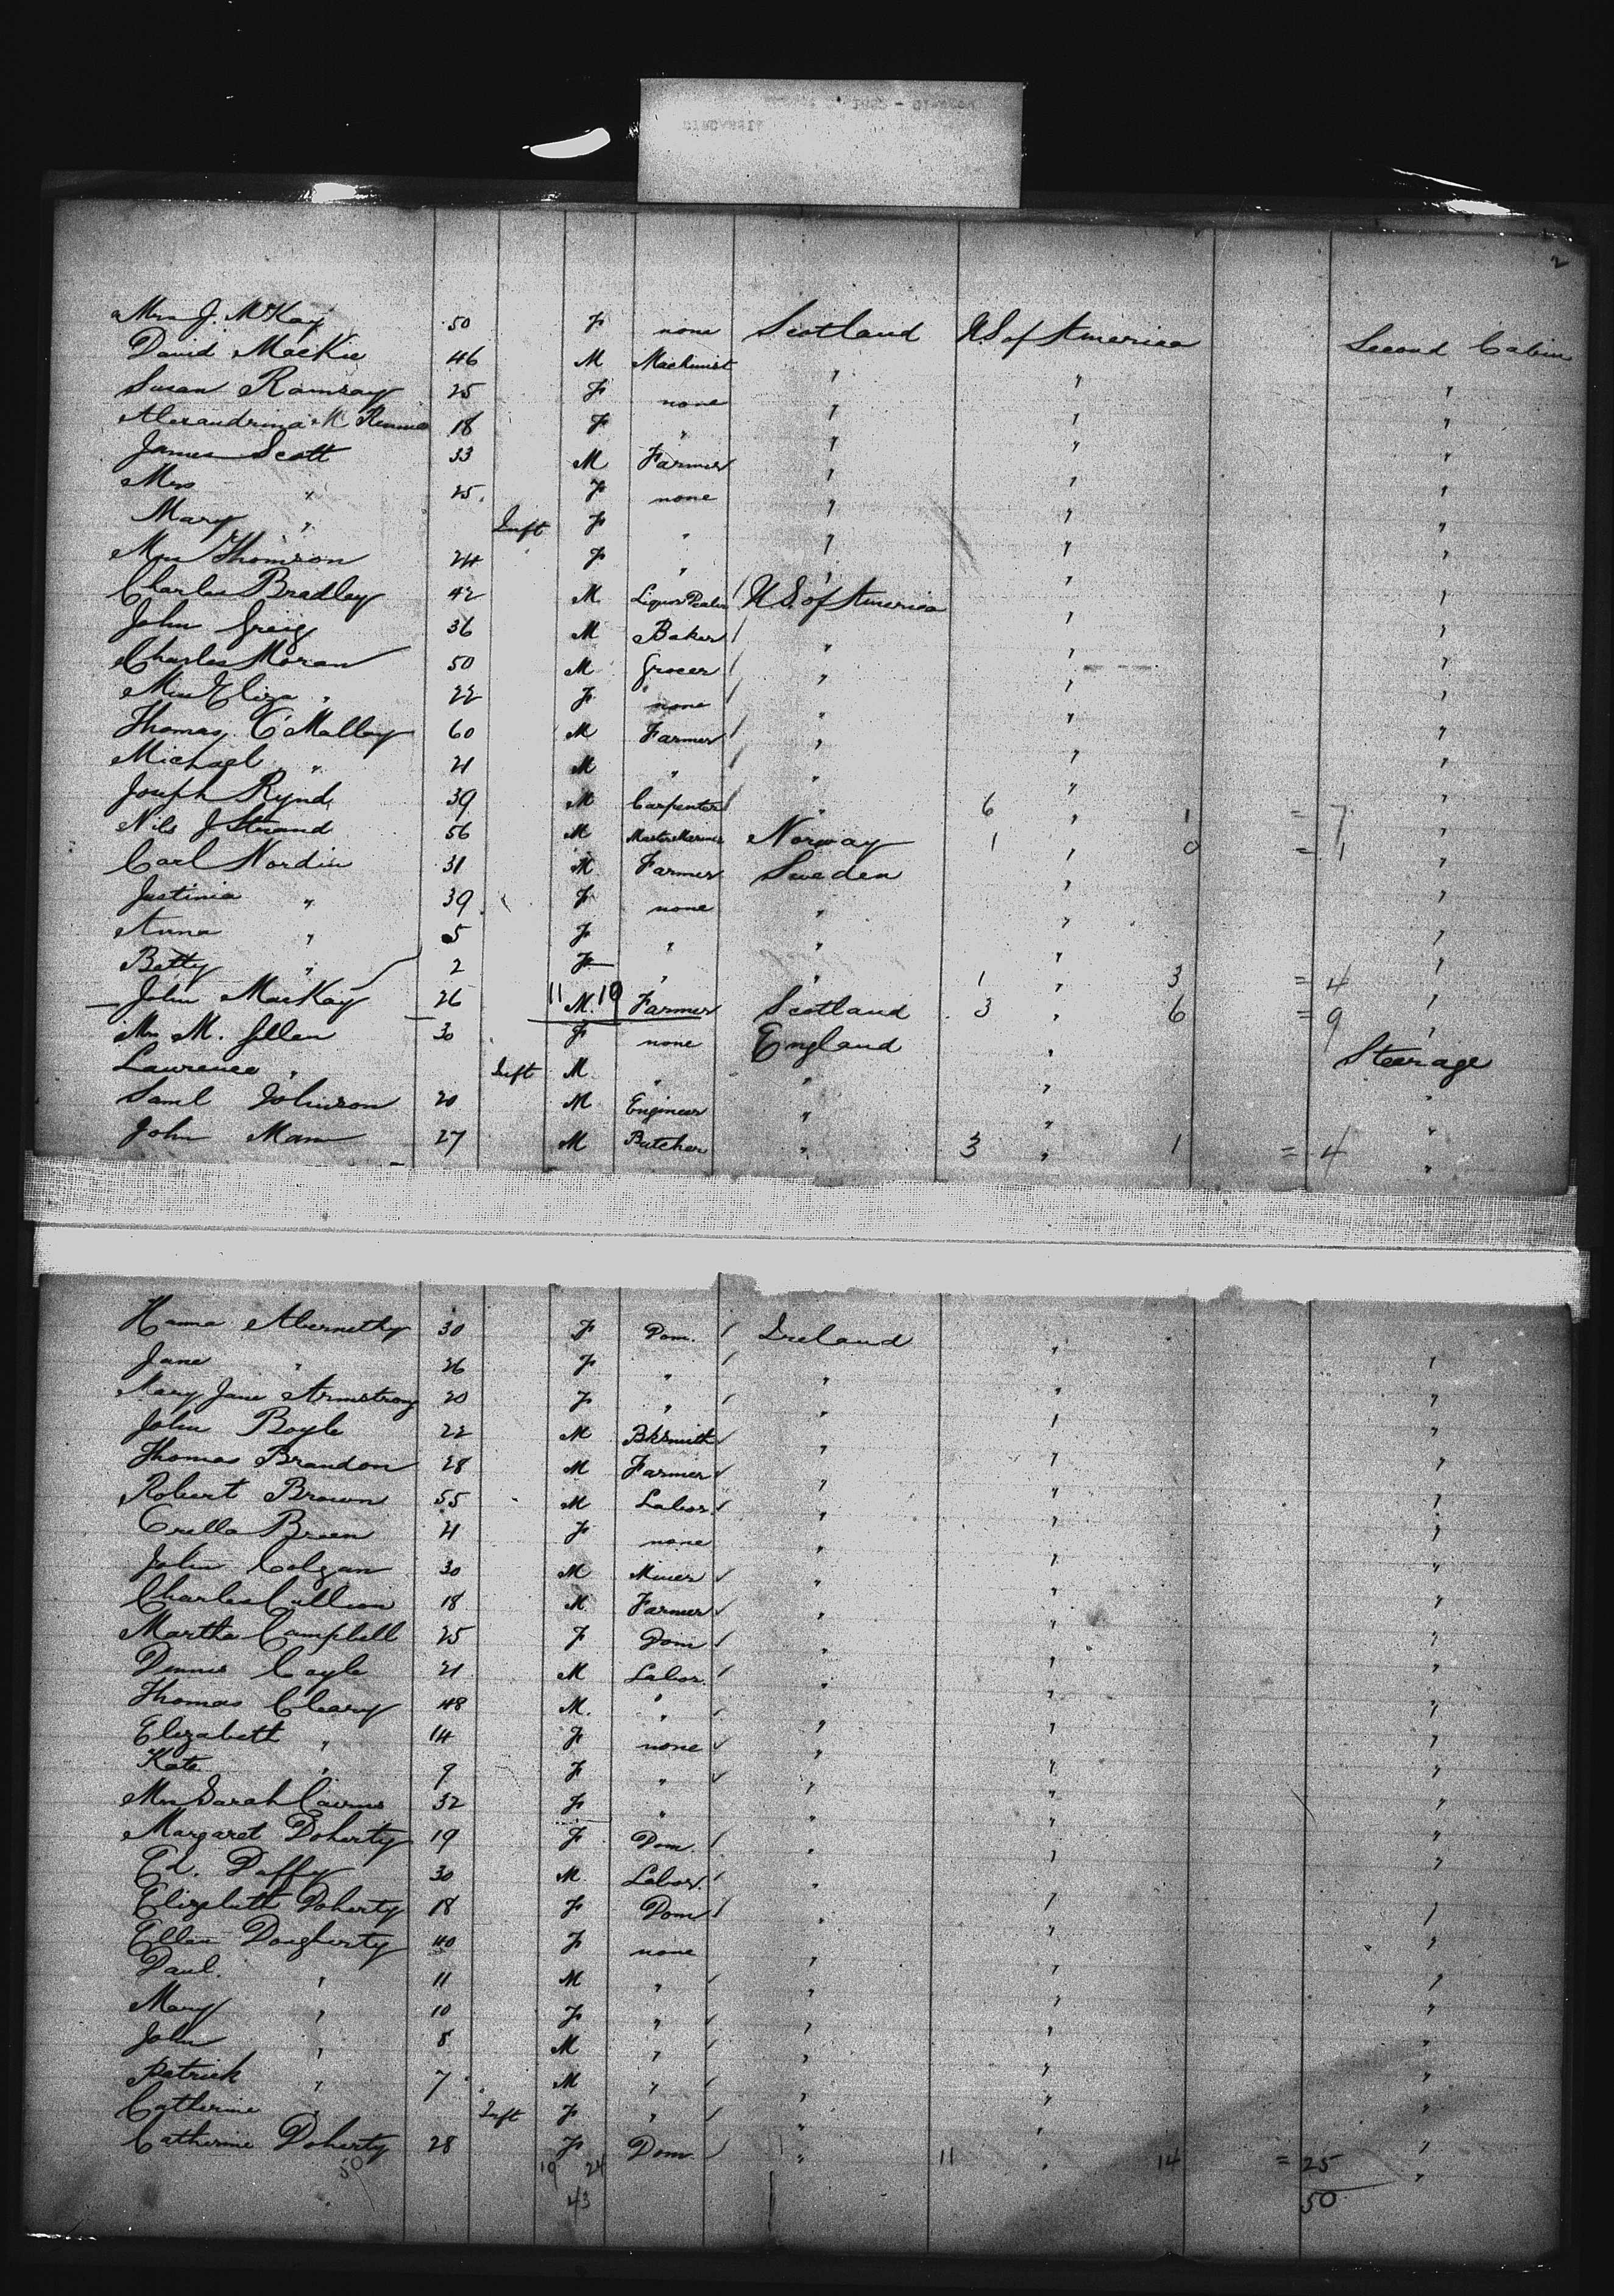 2
Mrs J. McKay 50 F none Scotland U S of America Second Cabin
David Mackie 46 M Machinist " " "
Susan Ramsay 25 F none " " "
Alexandrina M Rennie 18 F " " " "
James Scott 33 M Farmer " " "
Mrs " 25 F none " " "
Mary " Inft F " " " "
Mrs Thomson 24 F " " " "
Charles Bradley 42 M Liquor Dealer / U S. of America " "
John Greig 36 M Baker / " " "
Charles Moran 50 M Grocer / " " "
Miss Eliza " 22 F none / " " "
Thomas O'Malley 60 M Farmer / " " "
Michael " 21 M " / " " "
Joseph Rynd 39 M Carpenter / " 6 " 1 = 7 "
Nils J Strand 56 M Master Mariner Norway 1 " 0 = 1 "
Carl Nordin 31 M Farmer Sweden " "
Justinia " 39 F none " " "
Anna " 5 F " " " "
Betty " 2 F " " 1 " 3 = 4 "
John MacKay 26 11 M. 10 Farmer Scotland 3 " 6 = 9 "
Mrs M. Gillen 30 F none England " Steerage
Lawrence " Inft M " " " "
Saml Johnson 20 M Engineer " " "
John Mann 27 M Butcher " 3 " 1 = 4 "
Hanna Abernethy 30 F Dom. / Ireland " "
Jane " 26 F " / " " "
Mary Jane Armstrong 20 F " / " " "
John Boyle 22 M Bksmith / " " "
Thomas Brandon 28 M Farmer / " " "
Robert Brown 55 M Labor. / " " "
Breen 21 F none " " "
John Colgan 30 M Miner / " " "
Charles Cullion 18 M Farmer / " " "
Martha Campbell 25 F Dom / " " "
Dennis Coyle 21 M Labor. / " " "
Thomas Cleary 48 M. " / " " "
Elizabeth " 14 F none / " " "
Kate " 9 F " / " " "
Mrs Sarah Cairns 32 F " " " "
Margaret Doherty 19 F Dom. / " " "
Ed. Duffy 30 M. Labor. / " "
Elizabeth Doherty 18 F Dom / " " "
Ellen Dougherty 40 F none " " "
Paul. " 11 M " / " " "
Mary " 10 F " / " " "
John " 8 M " / " " "
Patrick " 7 M " / " " "
Catherine " Inft F " / " " "
Catherine Doherty 28 F Dom. / " 11 " 14 = 25 "
50 19 24 50
43